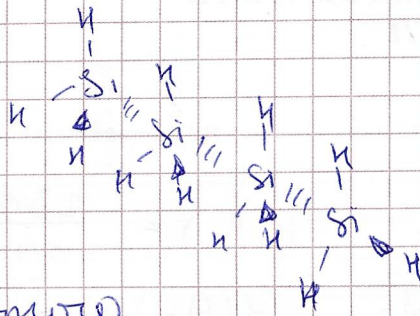 H
Si H
H Si H
H H Si H
H H Si
H H H
H